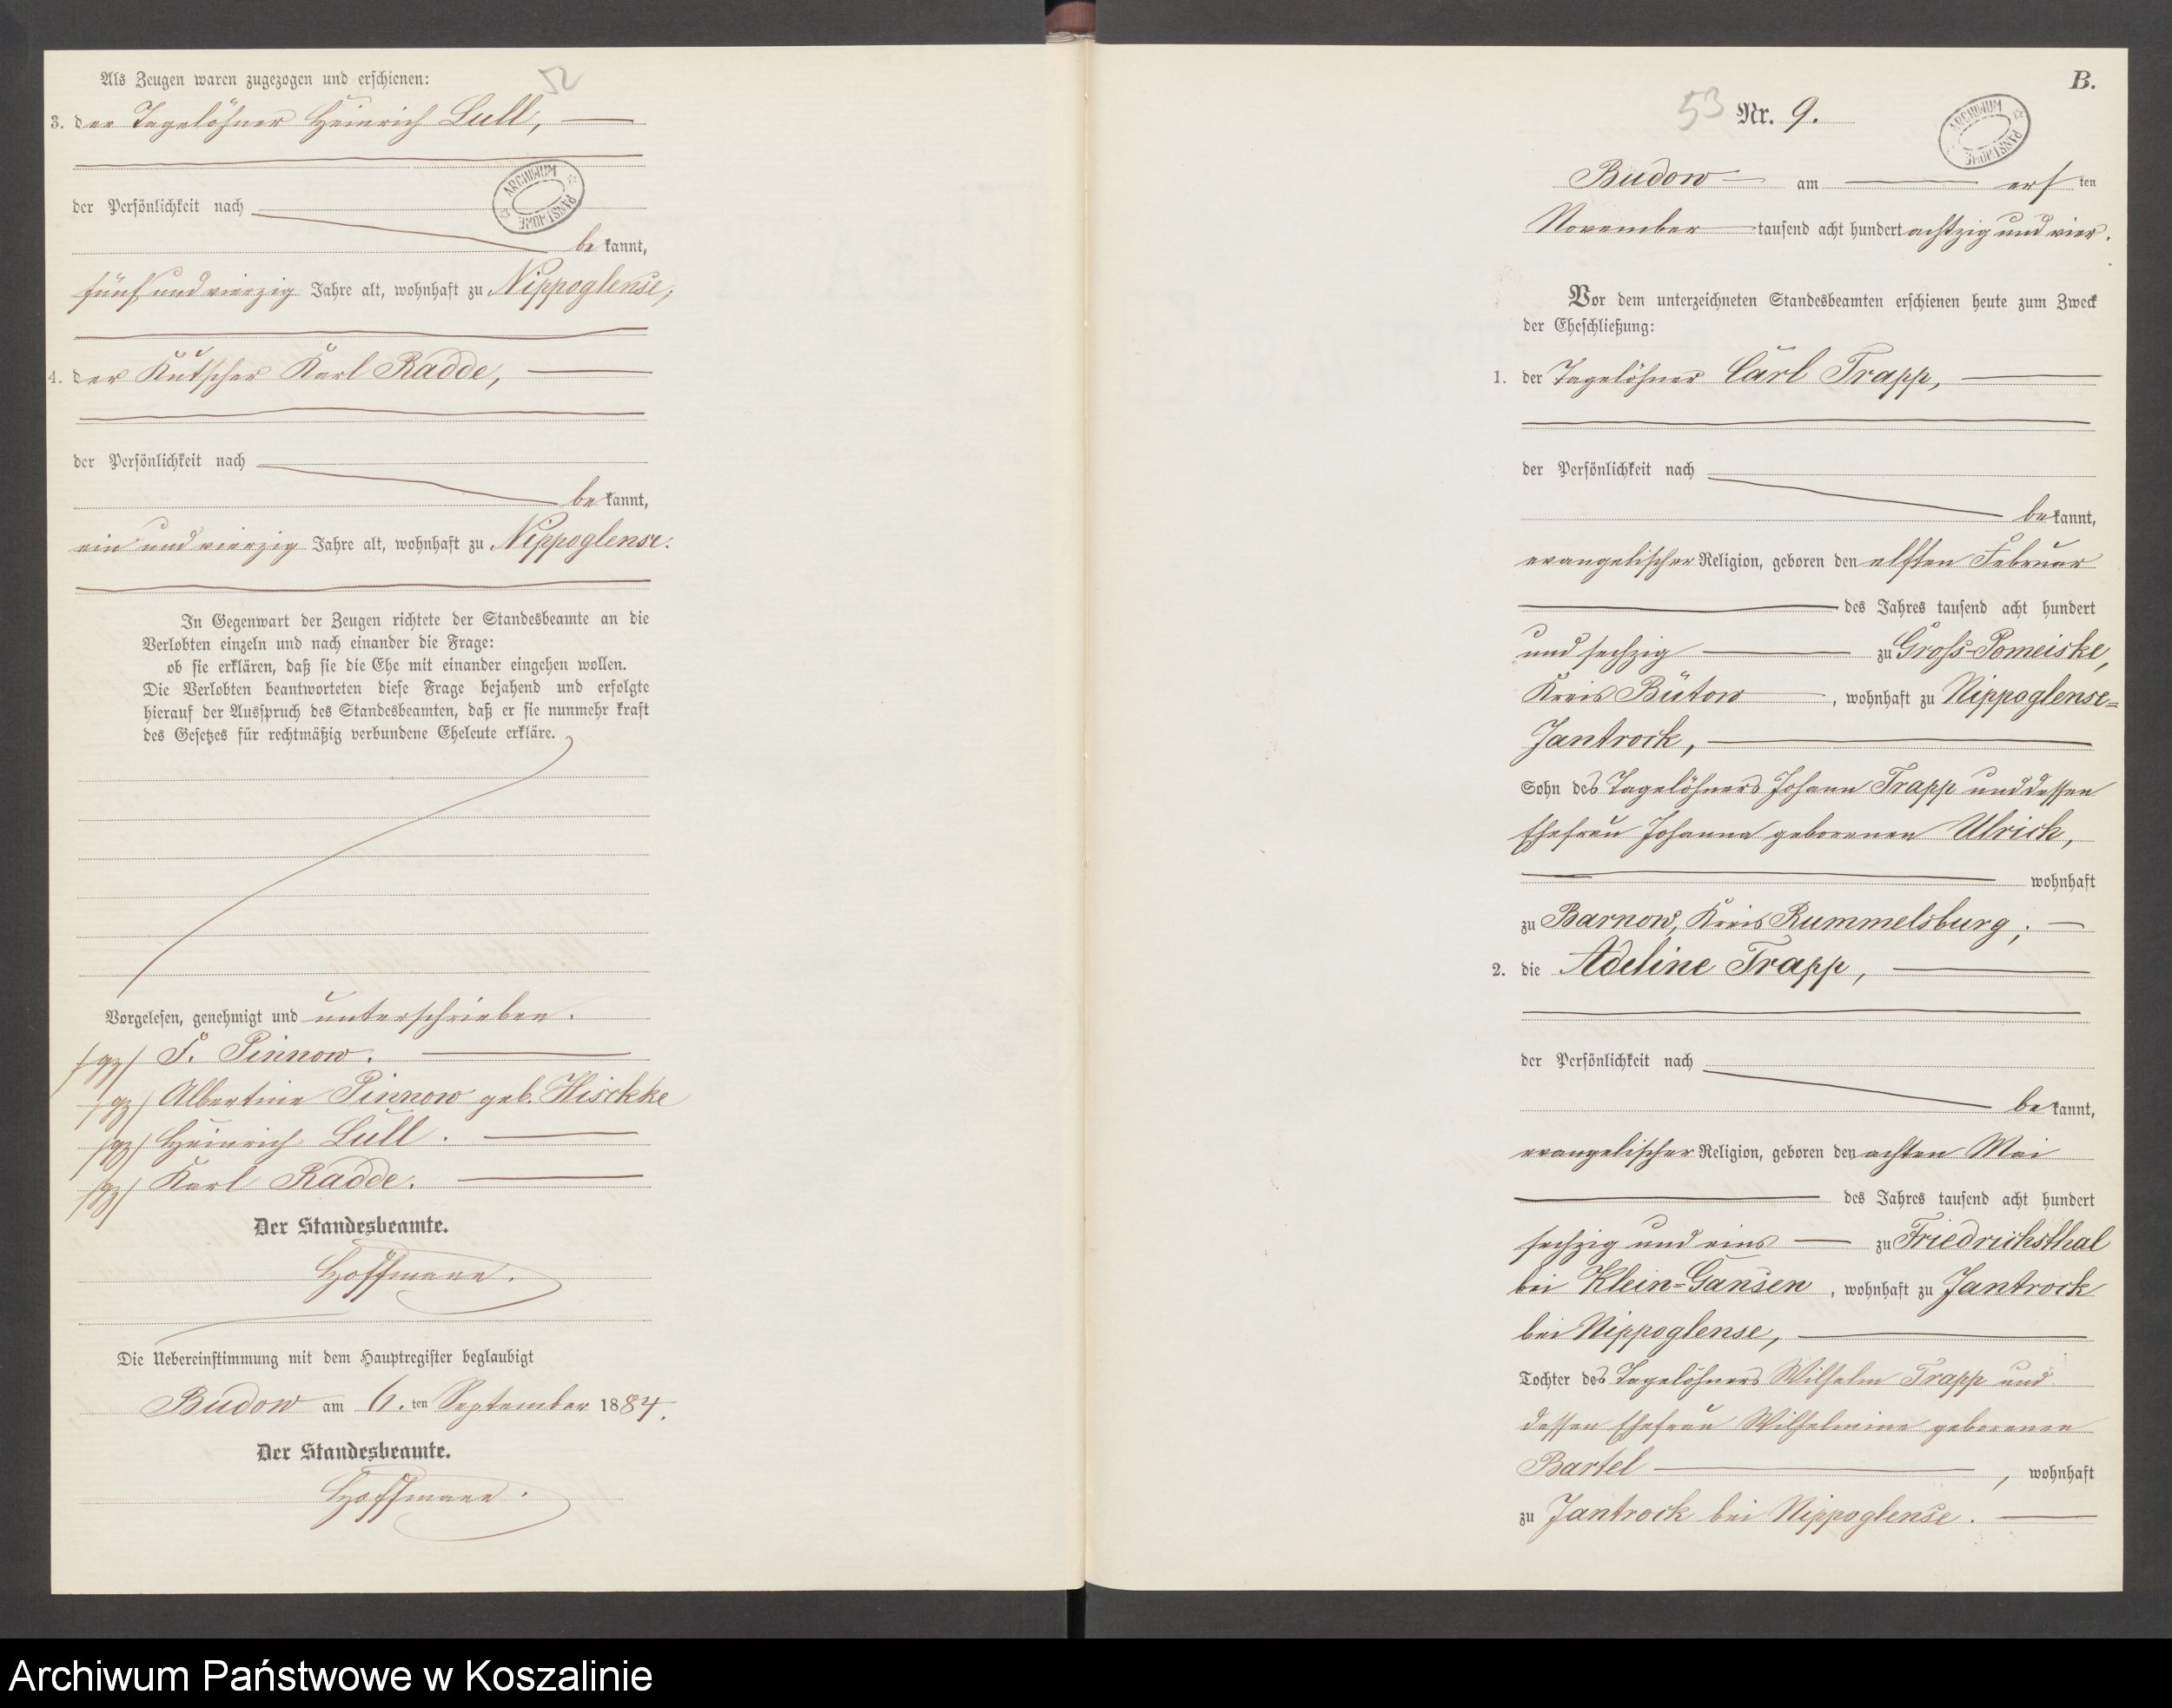 Als Zeugen waren zugezogen und erschienen:
52
3. der Tagelöhner Heinrich Lull,
ARCHIWUM PAŃSTWOWE
der Persönlichkeit nach
be kannt,
fünf und vierzig Jahre alt, wohnhaft zu Nippoglense,
4. der Kutscher Karl Radde,
der Persönlichkeit nach
be kannt,
ein und vierzig Jahre alt, wohnhaft zu Nippoglense.
In Gegenwart der Zeugen richtete der Standesbeamte an die
Verlobten einzeln und nach einander die Frage:
ob sie erklären, daß sie die Ehe mit einander eingehen wollen.
Die Verlobten beantworteten diese Frage bejahend und erfolgte
hierauf der Ausspruch des Standesbeamten, daß er sie nunmehr kraft
des Gesetzes für rechtmäßig verbundene Eheleute erkläre.
Vorgelesen, genehmigt und unterschrieben.
/gz/ F. Pinnow.
/gz/ Albertine Pinnow geb.
/gz/ Heinrich Lull.
/gz/ Karl Radde.
Der Standesbeamte.
Hoffmann.
Die Uebereinstimmung mit dem Hauptregister beglaubigt
Budow am 6. ten September 1884.
Der Standesbeamte.
Hoffmann.
B.
53 Nr. 9.
ARCHIWUM PAŃSTWOWE
Budow am ers ten
November tausend acht hundert achtzig und vier.
Vor dem unterzeichneten Standesbeamten erschienen heute zum Zweck
der Eheschließung:
1. der Tagelöhner Carl Trapp,
der Persönlichkeit nach
be kannt,
evangelischer Religion, geboren den elften Februar
des Jahres tausend acht hundert
und sechzig zu Groß-Pomeiske,
Kreis Bütow, wohnhaft zu Nippoglense-
Jantrock,
Sohn des Tagelöhners Johann Trapp und dessen
Ehefrau Johanna geborenen Ulrich,
wohnhaft
zu Barnow, Kreis Rummelsburg;
2. die Adeline Trapp,
der Persönlichkeit nach
be kannt,
evangelischer Religion, geboren den achten Mai
des Jahres tausend acht hundert
sechzig und eins zu Friedrichsthal
bei Klein-Gansen, wohnhaft zu Jantrock
bei Nippoglense,
Tochter des Tagelöhners Wilhelm Trapp und
dessen Ehefrau Wilhelmine geborenen
Bartel, wohnhaft
zu Jantrock bei Nippoglense.
Archiwum Państwowe w Koszalinie